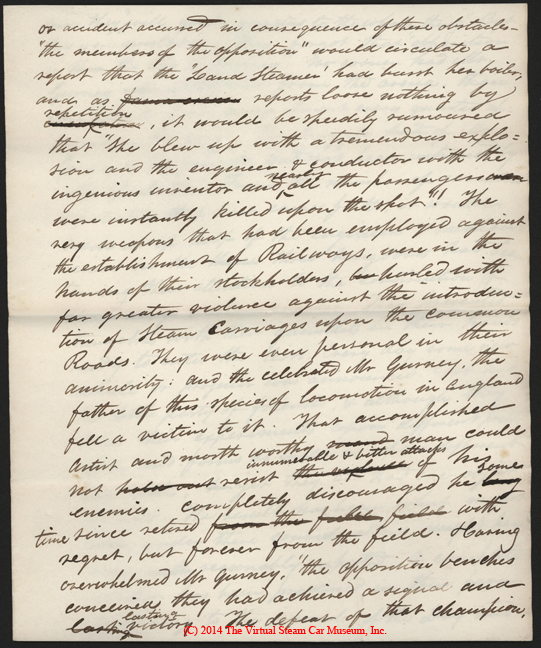 or accident occurred in consequence of these obstacles
"the members of the opposition" would circulate a
report that the "Land Steamer" had burst her boiler,
and as reports loose nothing by
repetition
, it would be speedily rumoured
that "She blew up with a tremendous explo=
sion and the engineer & conductor with the
nearly
ingenious inventor and all the passengers
were instantly killed upon the spot"!! The
very weapons that had been employed against
the establishment of Railways, were in the
hands of their stockholders, hurled with
far greater violence against the introduc=
tion of Steam Carriages upon the common
Roads. They were even personal in their
animosity: and the celebrated Mr Gurney, the
father of this species of locomotion in England
fell a victim to it. That accomplished
Artist and most worthy man could
innumerable & bitter attacks
not hold out resist the violence of his
some
enemies. Completely discouraged he long
time since retired from the field with
regret, but forever from the field. Having
overwhelmed Mr Gurney, "the opposition benches
conceived they had achieved a signal and
lasting
lasting victory. The defeat of that champion,
(C) 2014 The Virtual Steam Car Museum, Inc.